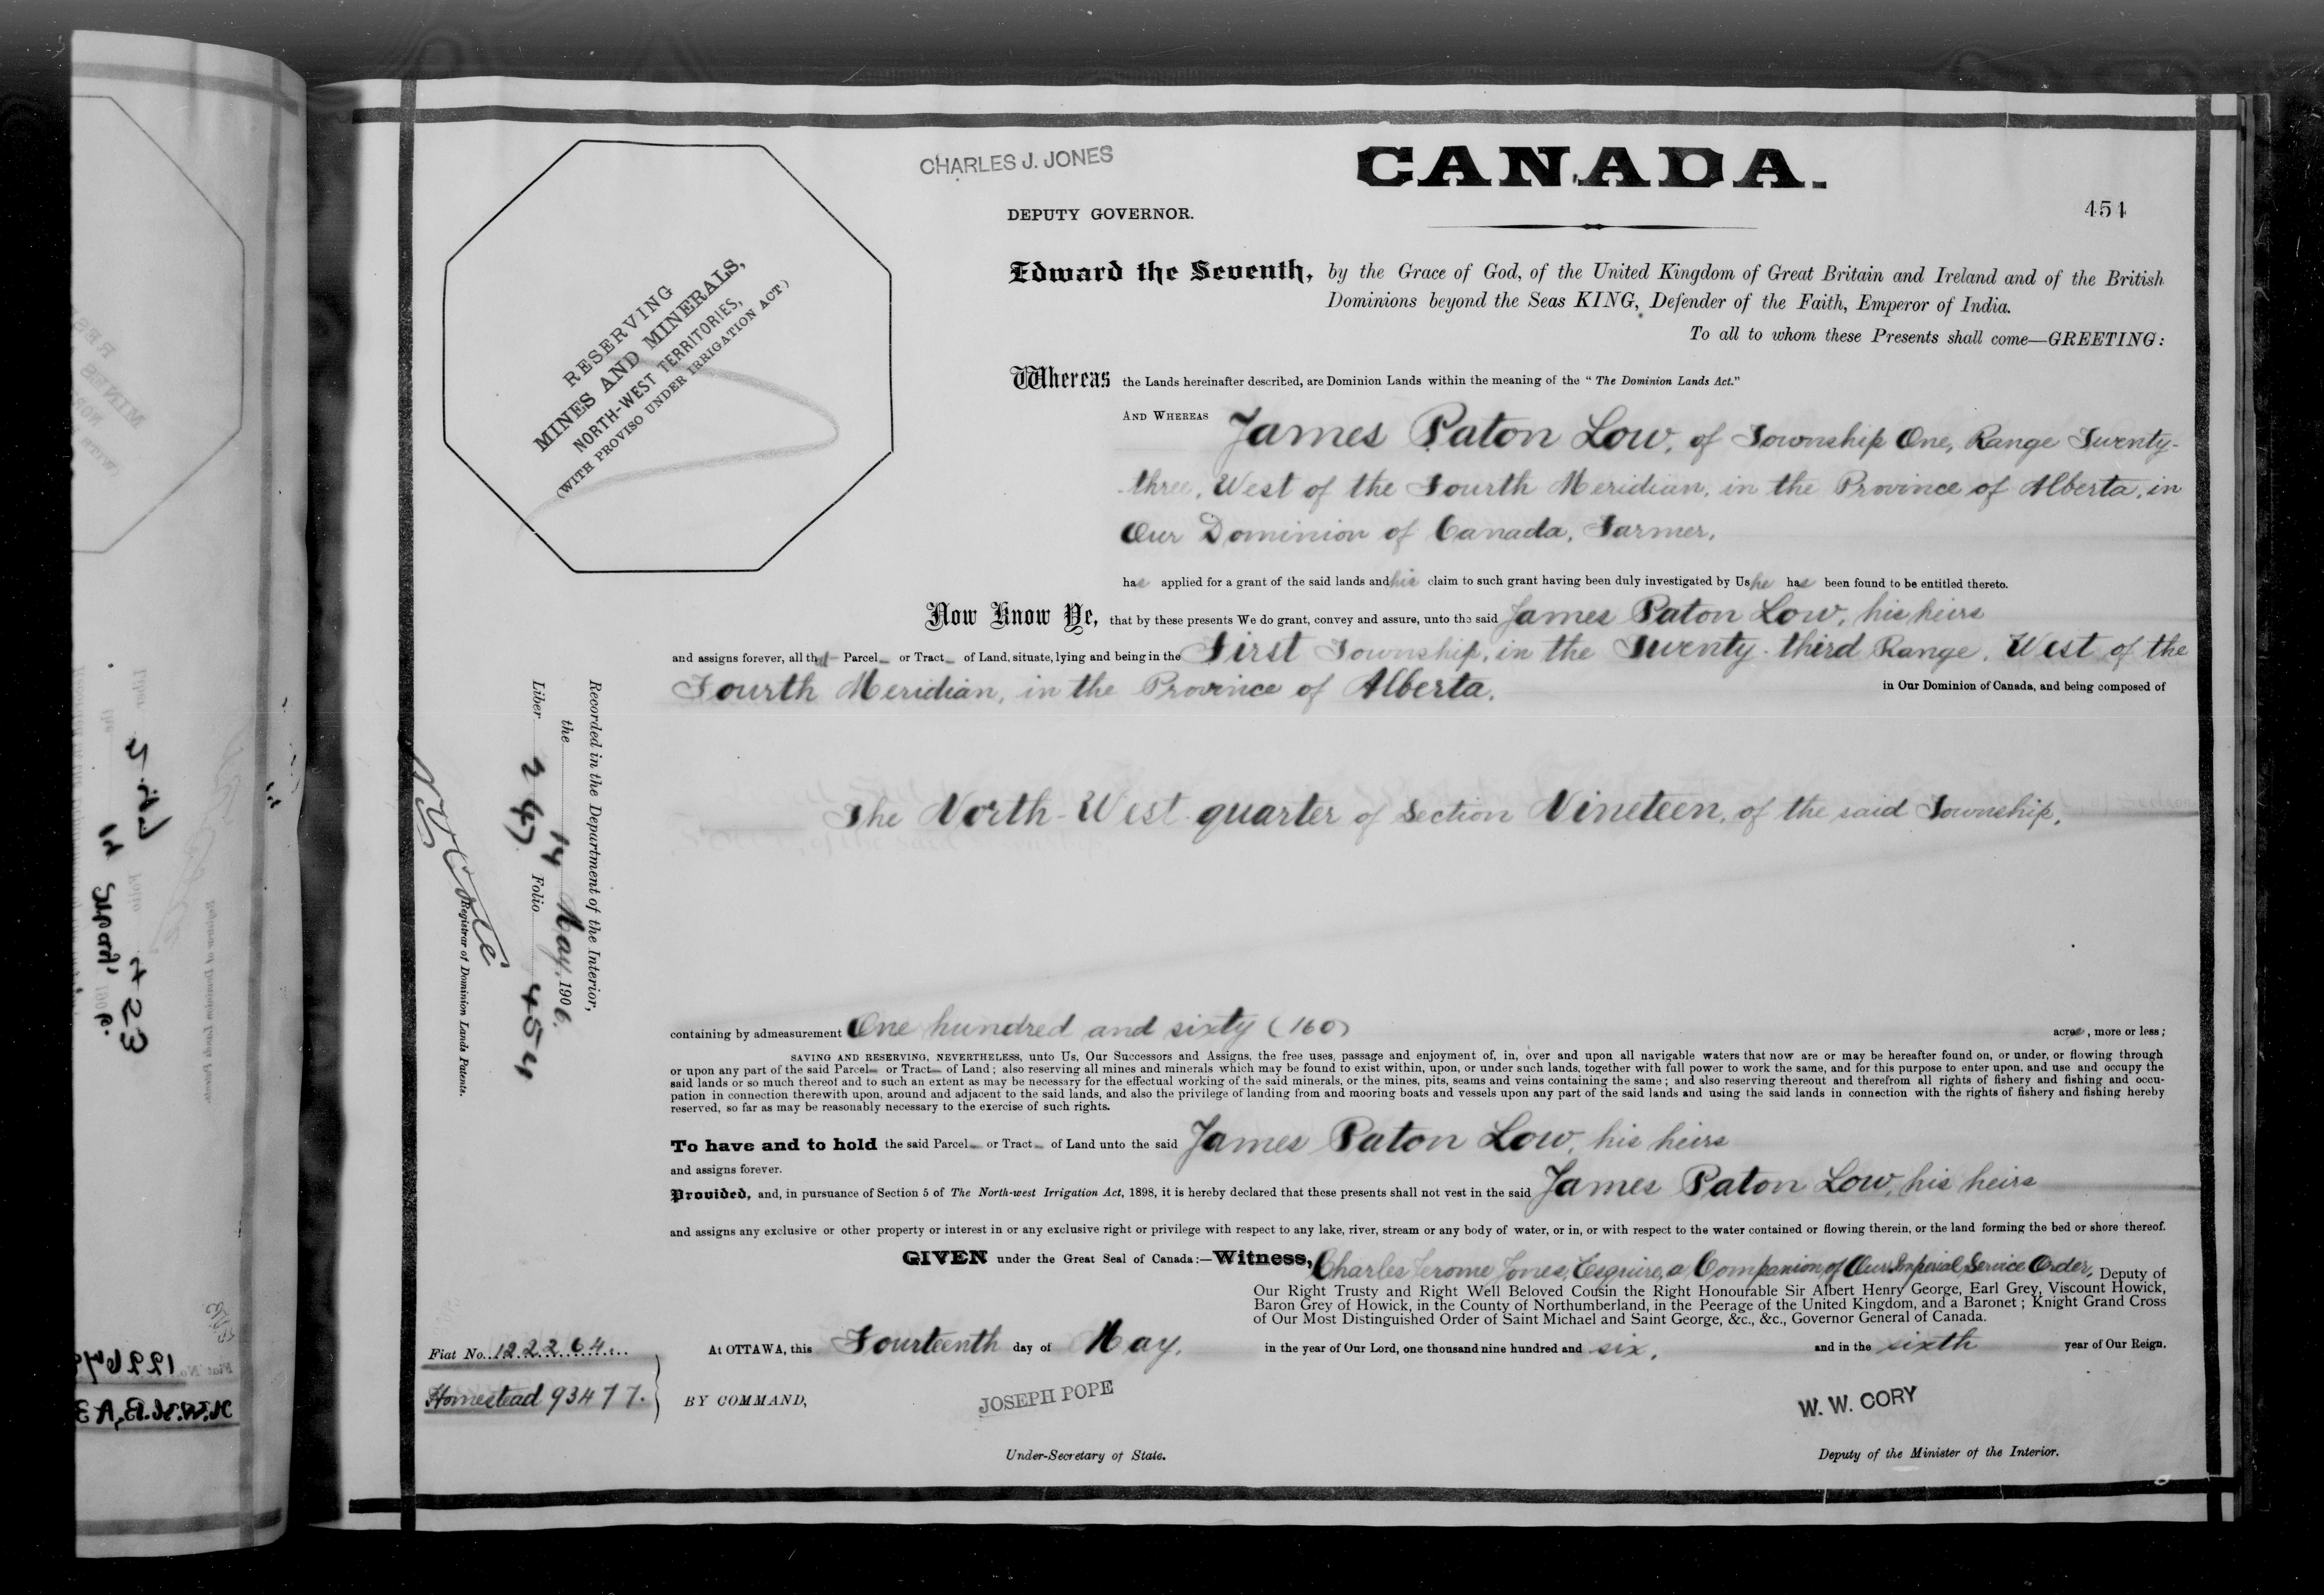 CHARLES J. JONES
CANADA.
DEPUTY GOVERNOR.
454
RESERVING
MINES AND MINERALS,
NORTH-WEST TERRITORIES,
(WITH PROVISO UNDER IRRIGATION ACT)
Edward the Seventh, by the Grace of God, of the United Kingdom of Great Britain and Ireland and of the British
Dominions beyond the Seas KING, Defender of the Faith, Emperor of India.
To all to whom these Presents shall come—GREETING:
Whereas the Lands hereinafter described, are Dominion Lands within the meaning of the "The Dominion Lands Act."
AND WHEREAS James Paton Low, of Township One, Range Twenty-
three, West of the Fourth Meridian, in the Province of Alberta, in
Our Dominion of Canada, Farmer,
has applied for a grant of the said lands and his claim to such grant having been duly investigated by Us he has been found to be entitled thereto.
Now Know Ye, that by these presents We do grant, convey and assure, unto the said James Paton Low, his heirs
and assigns forever, all that Parcel or Tract of Land, situate, lying and being in the First Township, in the Twenty-third Range, West of the
Fourth Meridian, in the Province of Alberta, in Our Dominion of Canada, and being composed of
The North-West quarter of Section Nineteen, of the said Township,
Recorded in the Department of the Interior,
the 14 May, 1906.
Liber 247 Folio 454
Registrar of Dominion Lands Patents.
containing by admeasurement One hundred and sixty (160) acres, more or less;
SAVING AND RESERVING, NEVERTHELESS, unto Us, Our Successors and Assigns, the free uses, passage and enjoyment of, in, over and upon all navigable waters that now are or may be hereafter found on, or under, or flowing through
or upon any part of the said Parcel or Tract of Land; also reserving all mines and minerals which may be found to exist within, upon, or under such lands, together with full power to work the same, and for this purpose to enter upon, and use and occupy the
said lands or so much thereof and to such an extent as may be necessary for the effectual working of the said minerals, or the mines, pits, seams and veins containing the same; and also reserving thereout and therefrom all rights of fishery and fishing and occu-
pation in connection therewith upon, around and adjacent to the said lands, and also the privilege of landing from and mooring boats and vessels upon any part of the said lands and using the said lands in connection with the rights of fishery and fishing hereby
reserved, so far as may be reasonably necessary to the exercise of such rights.
To have and to hold the said Parcel or Tract of Land unto the said James Paton Low, his heirs
and assigns forever.
Provided, and, in pursuance of Section 5 of The North-west Irrigation Act, 1898, it is hereby declared that these presents shall not vest in the said James Paton Low, his heirs
and assigns any exclusive or other property or interest in or any exclusive right or privilege with respect to any lake, river, stream or any body of water, or in, or with respect to the water contained or flowing therein, or the land forming the bed or shore thereof.
GIVEN under the Great Seal of Canada:—Witness, Charles Jerome Jones, Esquire, a Companion of Our Imperial Service Order, Deputy of
Our Right Trusty and Right Well Beloved Cousin the Right Honourable Sir Albert Henry George, Earl Grey, Viscount Howick,
Baron Grey of Howick, in the County of Northumberland, in the Peerage of the United Kingdom, and a Baronet; Knight Grand Cross
of Our Most Distinguished Order of Saint Michael and Saint George, &c., &c., Governor General of Canada.
At OTTAWA, this Fourteenth day of May, in the year of Our Lord, one thousand nine hundred and six, and in the sixth year of Our Reign.
Fiat No. 122264.
Homestead 93477.
BY COMMAND,
JOSEPH POPE
Under-Secretary of State.
W. W. CORY
Deputy of the Minister of the Interior.